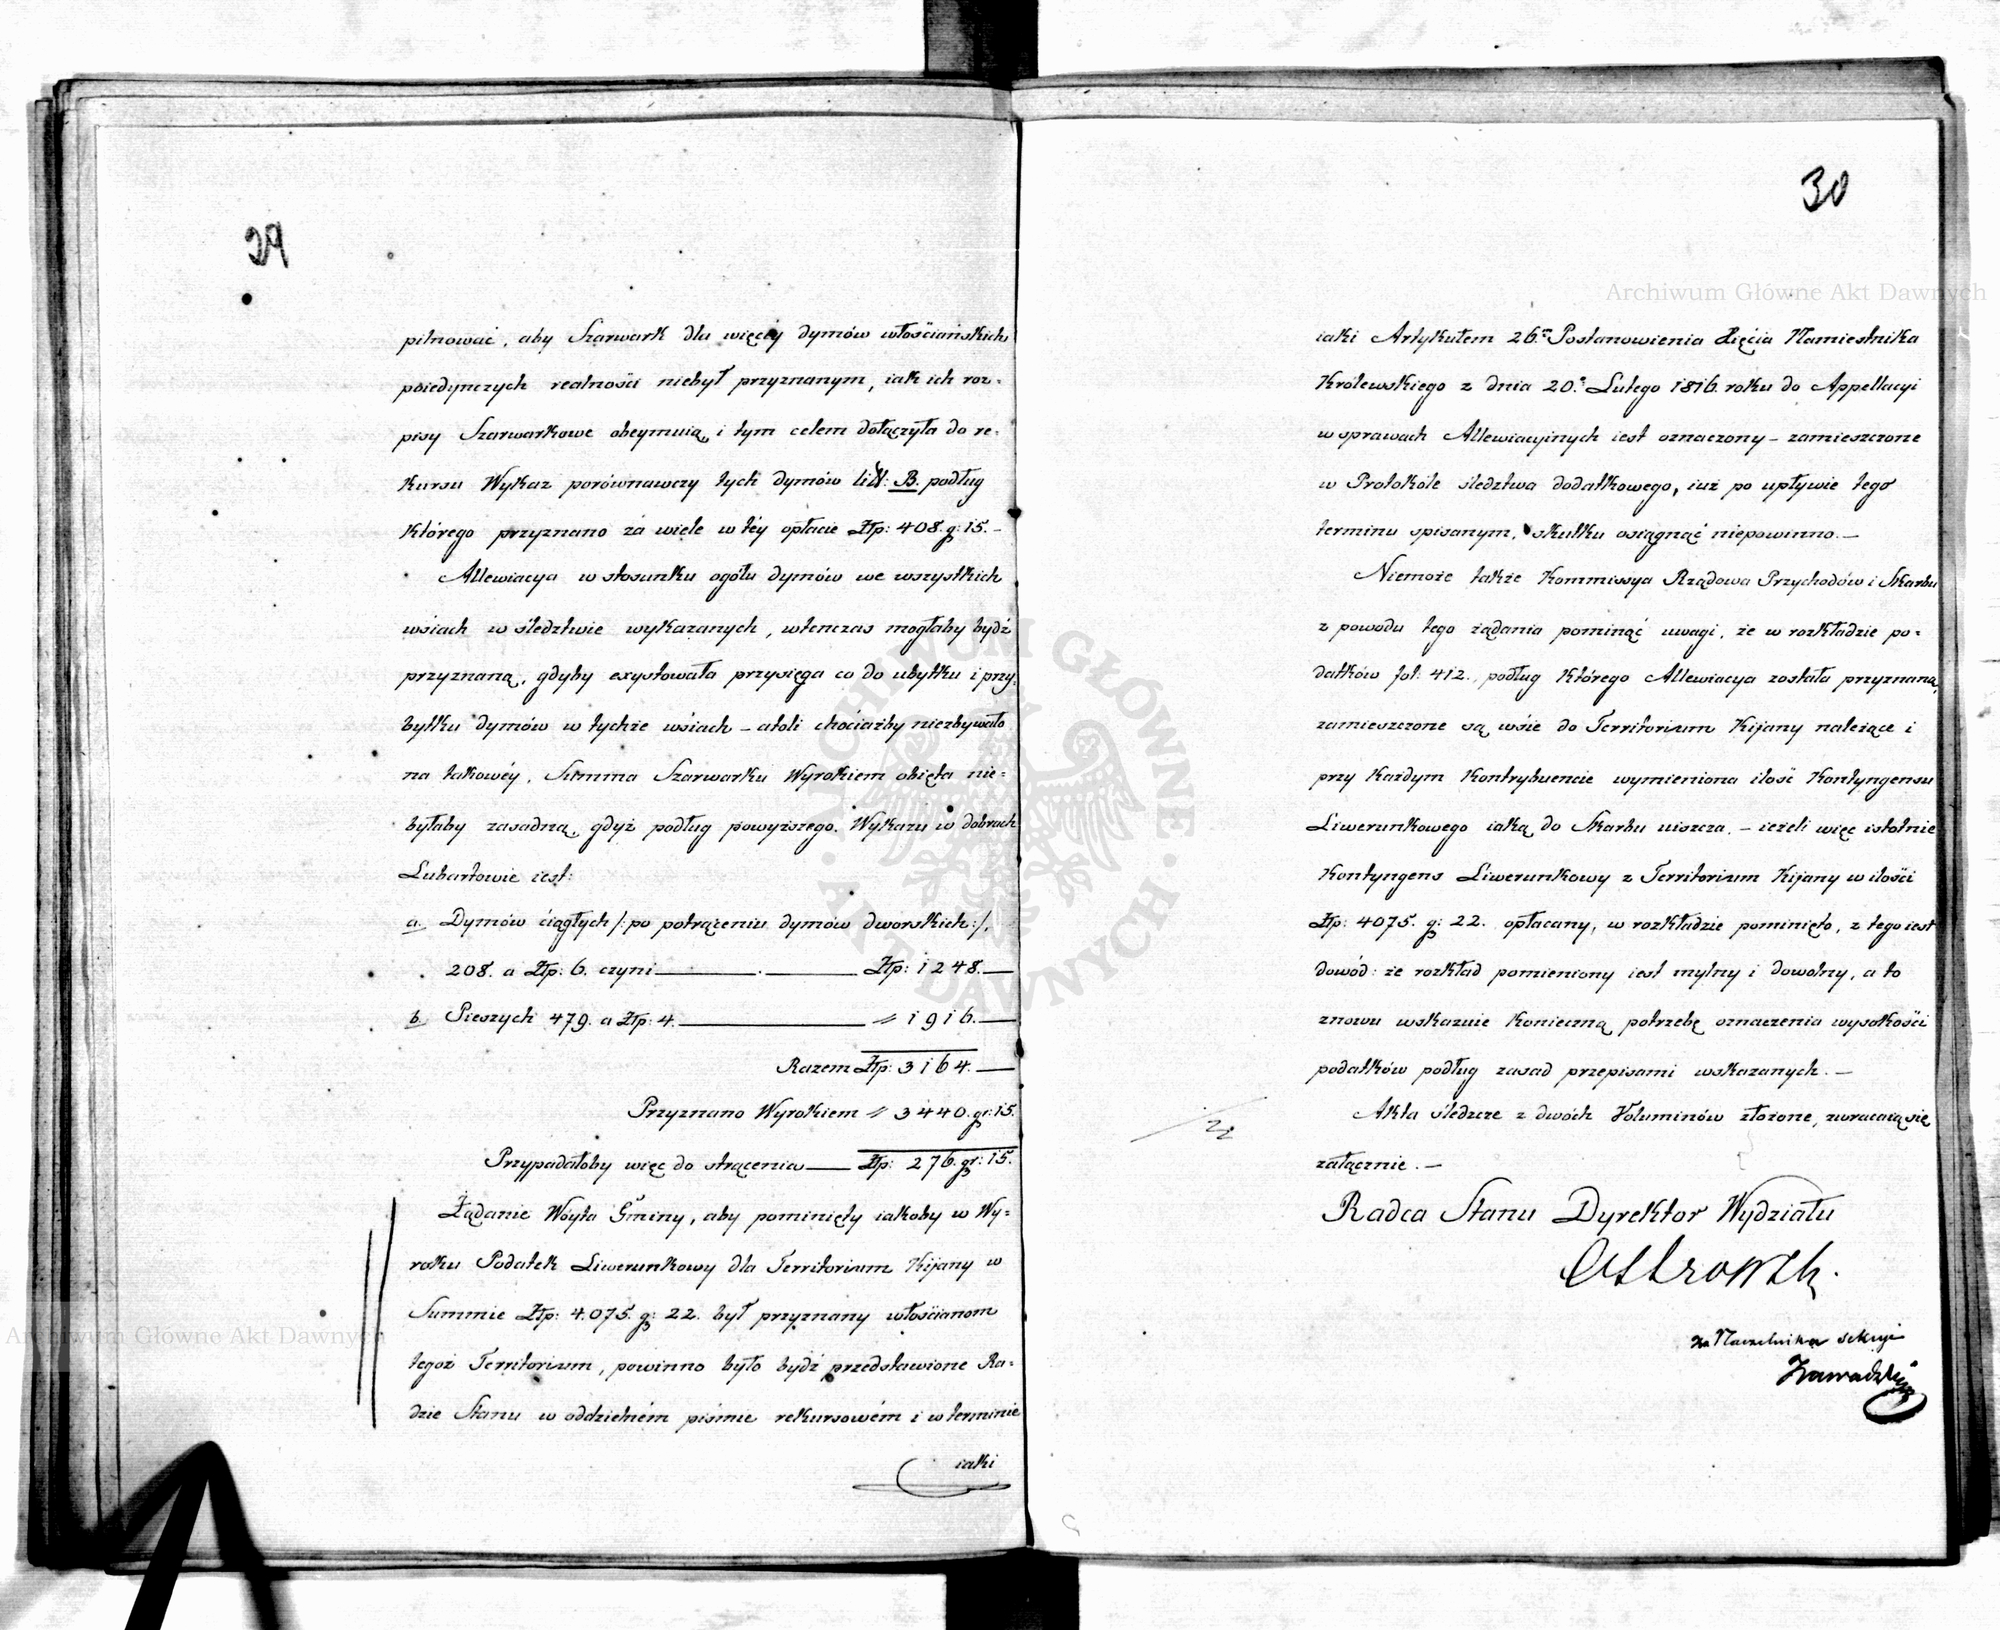 29
pilnować, aby Szarwark dla więcéy dymów włościańskich
poiedynczych realności niebył przyznanym, iak ich roz=
pisy Szarwarkowe obeymuią, i tym celem dołączyła do re=
kursu Wykaz porównawczy tych dymów litt: B. podług
Którego przyznano za wiele w téy opłacie Złp: 408. g: 15. –
Allewiacya w stosunku ogółu dymów we wszystkich
wsiach w śledztwie wykazanych, wtenczas mogłaby bydź
przyznaną, gdyby exystowała przysięga co do ubytku i przy=
bytku dymów w tychże wsiach – atoli chociażby niezbywało
na takowéy, Summa Szarwarku Wyrokiem obięta nie=
byłaby zasadną, gdyż podług powyższego Wykazu w dobrach
Lubartowie iest:
a. Dymów ciągłych /: po potrąceniu dymów dworskich :/,
208. a Złp: 6. czyni — Złp: 1248. —
b. Pieszych 479. a Złp: 4. — // 1916. —
Razem Złp: 3164. —
Przyznano Wyrokiem // 3440. gr: 15.
Przypadałoby więc do strącenia — Złp: 276. gr: 15.
Żądanie Wóyta Gminy, aby pominięty iakoby w Wy=
roku Podatek Liwerunkowy dla Territorium Kijany w
Summie Złp: 4.075. g: 22. był przyznany włościanom
tegoż Territorium, powinno było bydź przedstawione Ra=
dzie Stanu w oddzielném piśmie rekursowém i w terminie
iaki
30
iaki Artykułem 26.m Postanowienia Xięcia Namiestnika
Królewskiego z dnia 20.o Lutego 1816. roku do Appellacyi
w sprawach Allewiacyinych iest oznaczony – zamieszczone
w Protokóle śledztwa dodatkowego, iuż po upływie tego
terminu spisanym, skutku osiągnąć niepowinno. –
Niemoże także Kommissya Rządowa Przychodów i Skarbu
z powodu tego żądania pominąć uwagi, że w rozkładzie po=
datków fol: 412., podług którego Allewiacya została przyznaną,
zamieszczone są wsie do Territorium Kijany należące i
przy każdym Kontrybuencie wymieniona ilość Kontyngensu
Liwerunkowego iaką do Skarbu uiszcza. – ieżeli więc istotnie
Kontyngens Liwerunkowy z Territorium Kijany w ilości
Złp: 4075. g: 22. opłacany, w rozkładzie pominięto, z tego iest
dowód: że rozkład pomieniony iest mylny i dowolny, a to
znowu wskazuie konieczną potrzebę oznaczenia wysokości
podatków podług zasad przepisami wskazanych. –
Akta śledcze z dwóch Voluminów złożone, zwracaią się
załącznie. –
Radca Stanu Dyrektor Wydziału
Ostrowsk.
za Naczelnika Sekcyi
Zawadzki
Archiwum Główne Akt Dawnych
Archiwum Główne Akt Dawnych
ARCHIWUM GŁÓWNE · AKT DAWNYCH ·